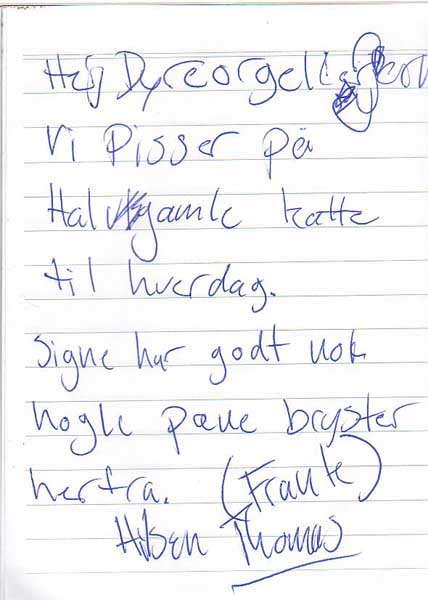 Hej Dyreorgel
Vi Pisser på
Halvgamle katte
til hverdag.
Signe har godt nok
nogle pæne bryster
herfra. (Frank)
Hilsen Thomas